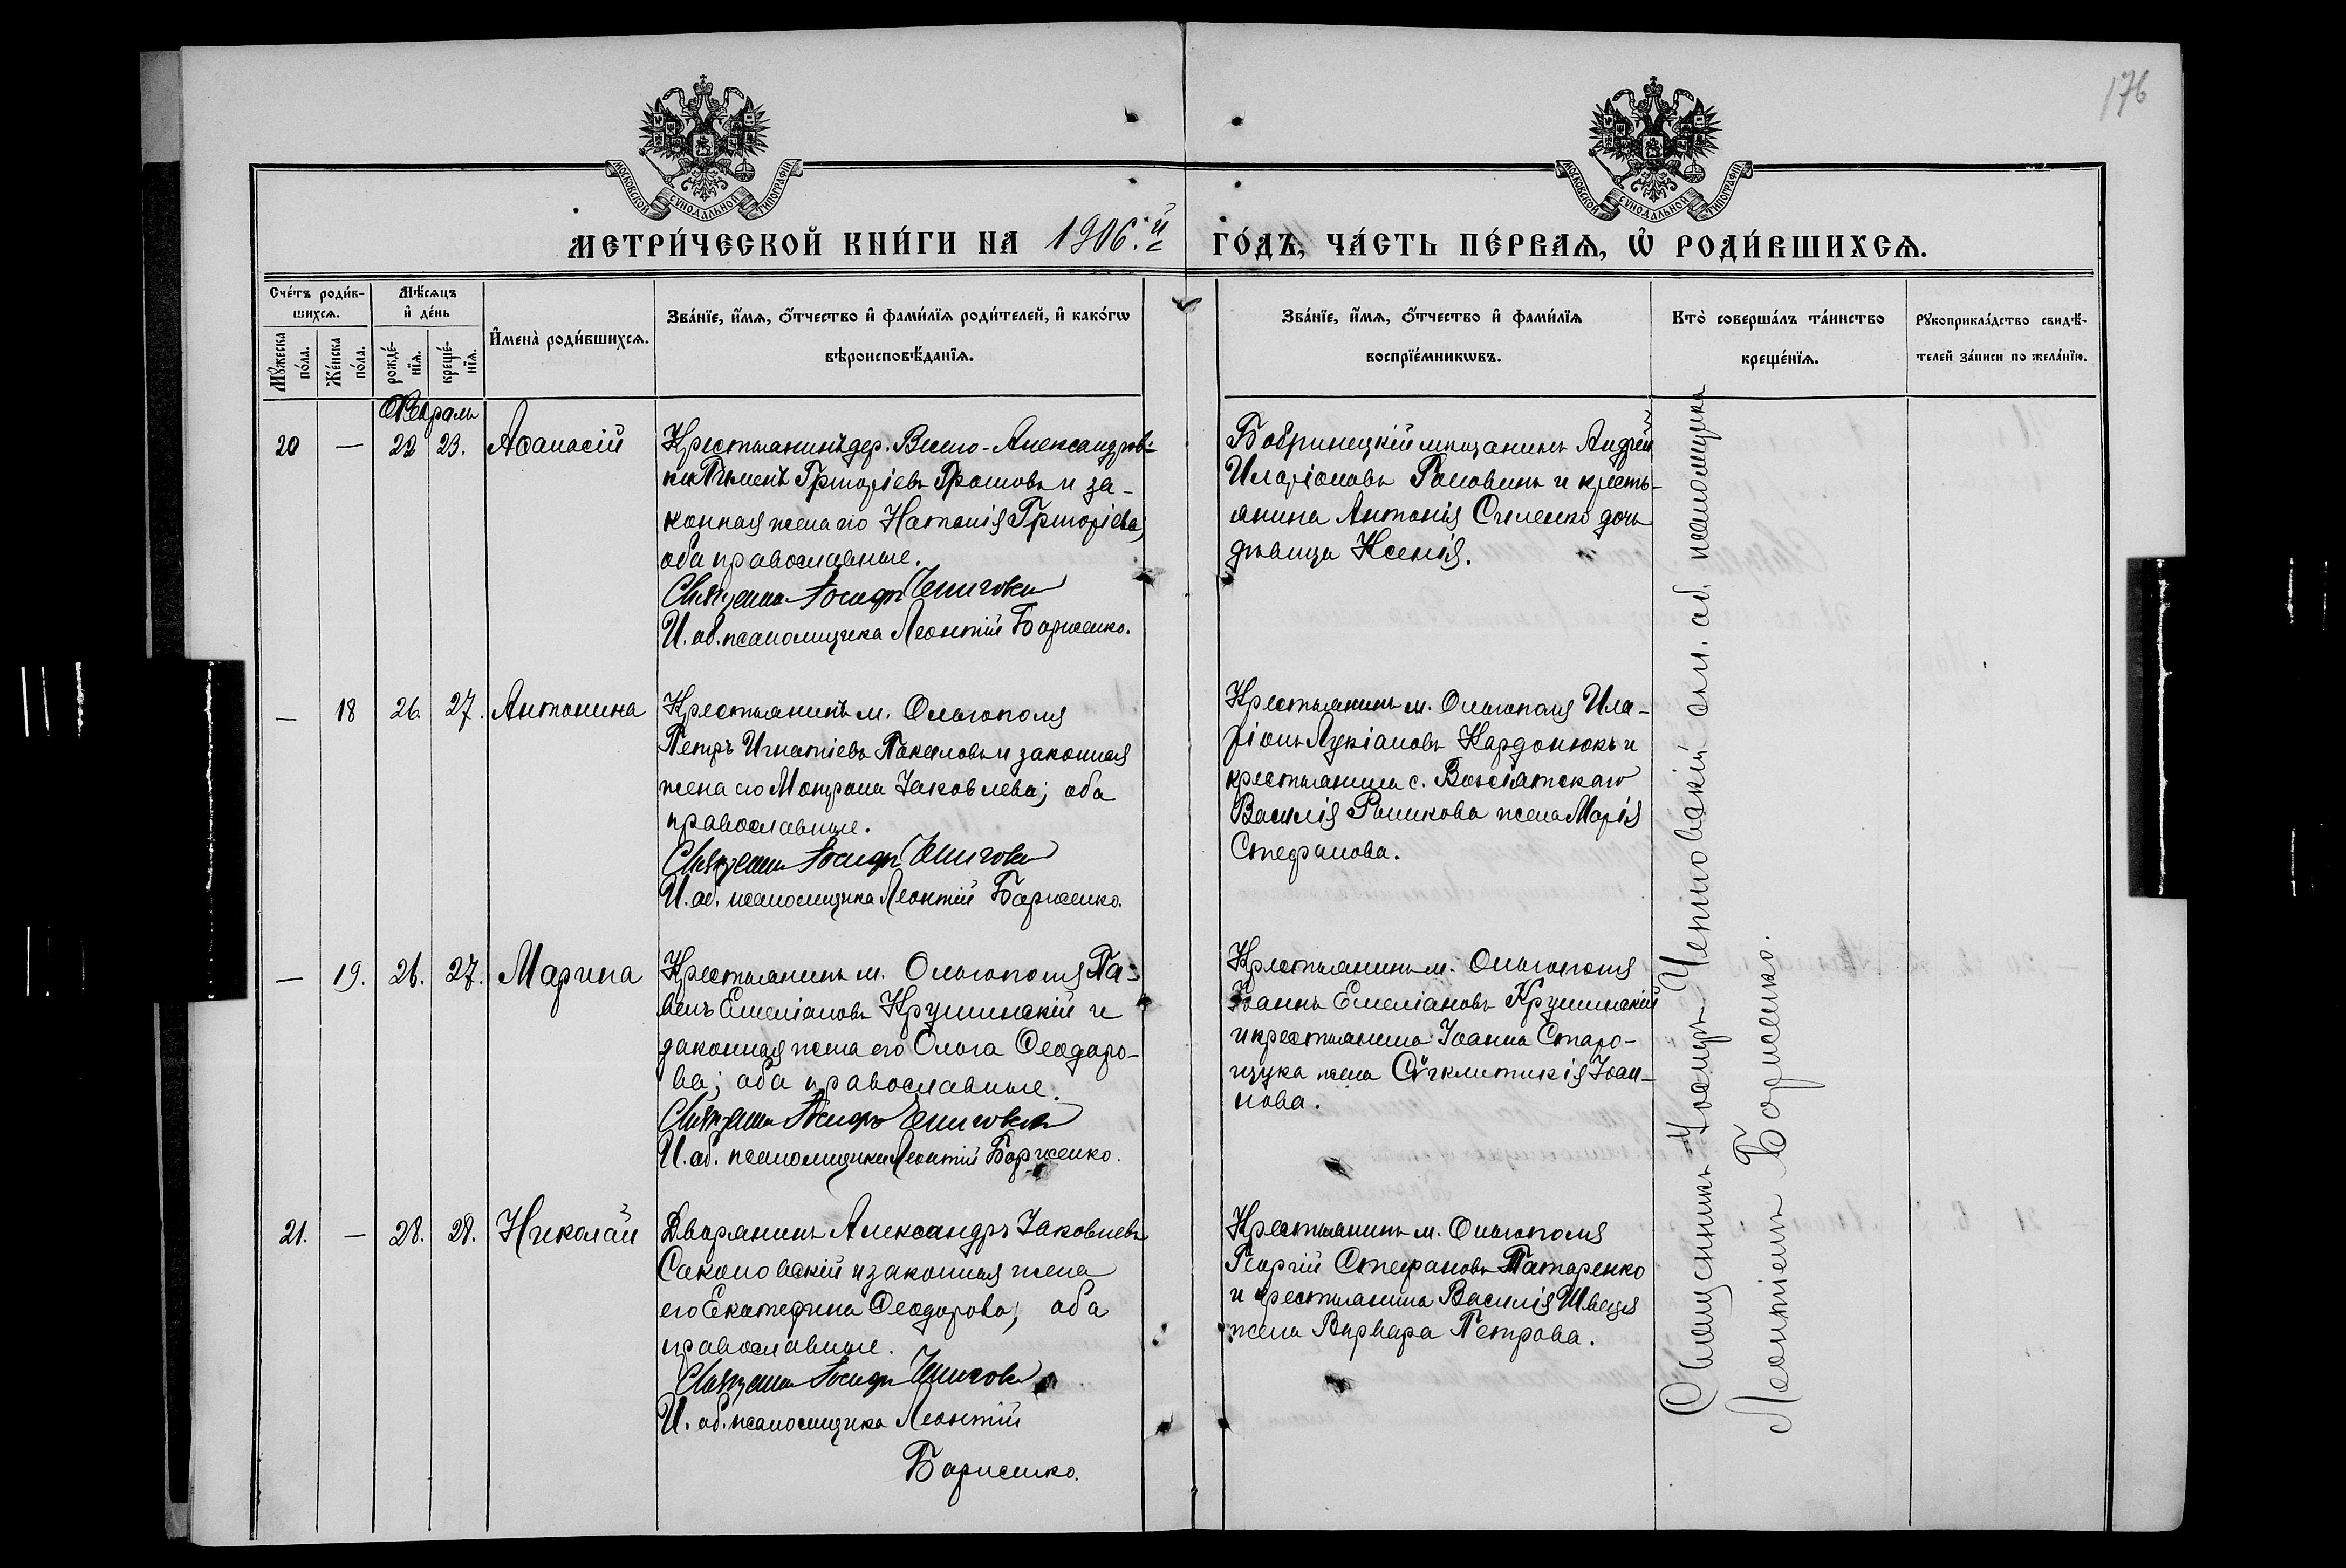 176
МОСКОВСКОЙ СѴНОДАЛЬНОЙ ТИПОГРАФІИ
МОСКОВСКОЙ СѴНОДАЛЬНОЙ ТИПОГРАФІИ
МЕТРИ́ЧЕСКОЙ КНИ́ГИ НА 1906.й ГО́ДЪ, ЧА́СТЬ ПЕ́РВАѦ, Ѡ҆ РОДИ́ВШИХСѦ.
Сче́тъ роди́в-
шихсѧ.
Мꙋ́жеска
по́ла.
Же́нска
по́ла.
Мѣ́сѧцъ
и҆ де́нь
рожде́-
нїѧ.
креще́-
нїѧ.
И҆мена̀ роди́вшихсѧ.
Зва́нїе, и҆́мѧ, ѻ҆́тчество и҆ фами́лїѧ роди́телей, и҆ како́гѡ
вѣроисповѣ́данїѧ.
Зва́нїе, и҆́мѧ, ѻ҆́тчество и҆ фами́лїѧ
воспрїе́мникѡвъ.
Кто̀ соверша́лъ та́инство
креще́нїѧ.
Рꙋкоприкла́дство свидѣ́-
телей за́писи по жела́нїю.
Февраль
20 — 22 23. Аѳанасій
Крестьянинъ дер. Висло-Александров-
ки Пименъ Григоріевъ Грошовъ и за-
конная жена его Наталія Григоріева;
оба православные.
Священникъ Іосифъ Чепиговскій
И. об. псаломщика Леонтій Борженко.
Бобринецкій мѣщанинъ Андрей
Иларіоновъ Головинъ и кресть-
янина Антонія Силенко дочь
дѣвица Ксенія.
— 18 26. 27. Антонина
Крестьянинъ м. Ольгополя
Петръ Игнатіевъ и законная
жена его Матрона Іаковлева; оба
православные.
Священникъ Іосифъ Чепиговскій
И. об. псаломщика Леонтій Борженко.
Крестьянинъ м. Ольгополя Ила-
ріонъ Лукіановъ Кардонюкъ и
крестьянина с. Возсіятскаго
Василія жена Марія
Стефанова.
— 19. 26. 27. Марина
Крестьянинъ м. Ольгополя Па-
велъ Емеліановъ Крушинскій и
законная жена его Ольга Ѳеодоро-
ва; оба православные.
Священникъ Іосифъ Чепиговскій
И. об. псаломщика Леонтій Борженко.
Крестьянинъ м. Ольгополя
Іоаннъ Емеліановъ Крушинскій
и крестьянина Іоанна Старо-
щука жена Сѵгклитикія Іоан-
нова.
21. — 28. 28. Николай
Дворянинъ Александръ Іаковлевъ
Соколовскій и законная жена
его Екатерина Ѳеодорова; оба
православные.
Священникъ Іосифъ Чепиговскій
И. об. псаломщика Леонтій
Борженко.
Крестьянинъ м. Ольгополя
Георгій Стефановъ Татаренко
и крестьянина Василія Швеця
жена Варвара Петрова.
Священникъ Іосифъ Чепиговскій съ и. об. псаломщика
Леонтіемъ Борженко.